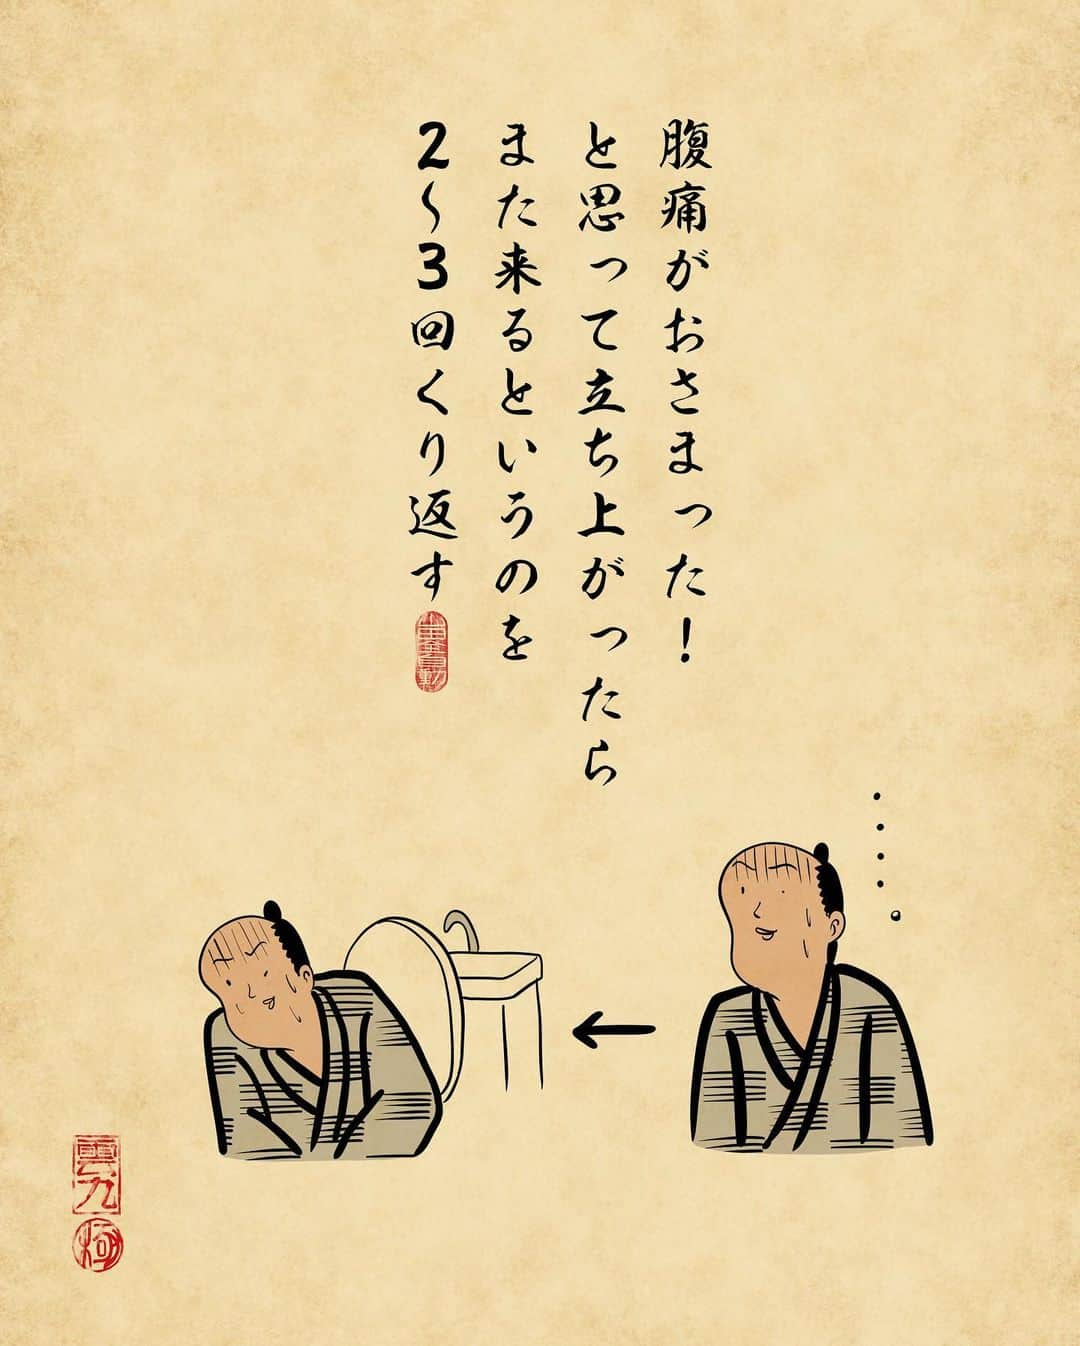 腹痛がおさまった！
と思って立ち上がったら
また来るというのを
2〜3回くり返す
山田全自動
雲九
極